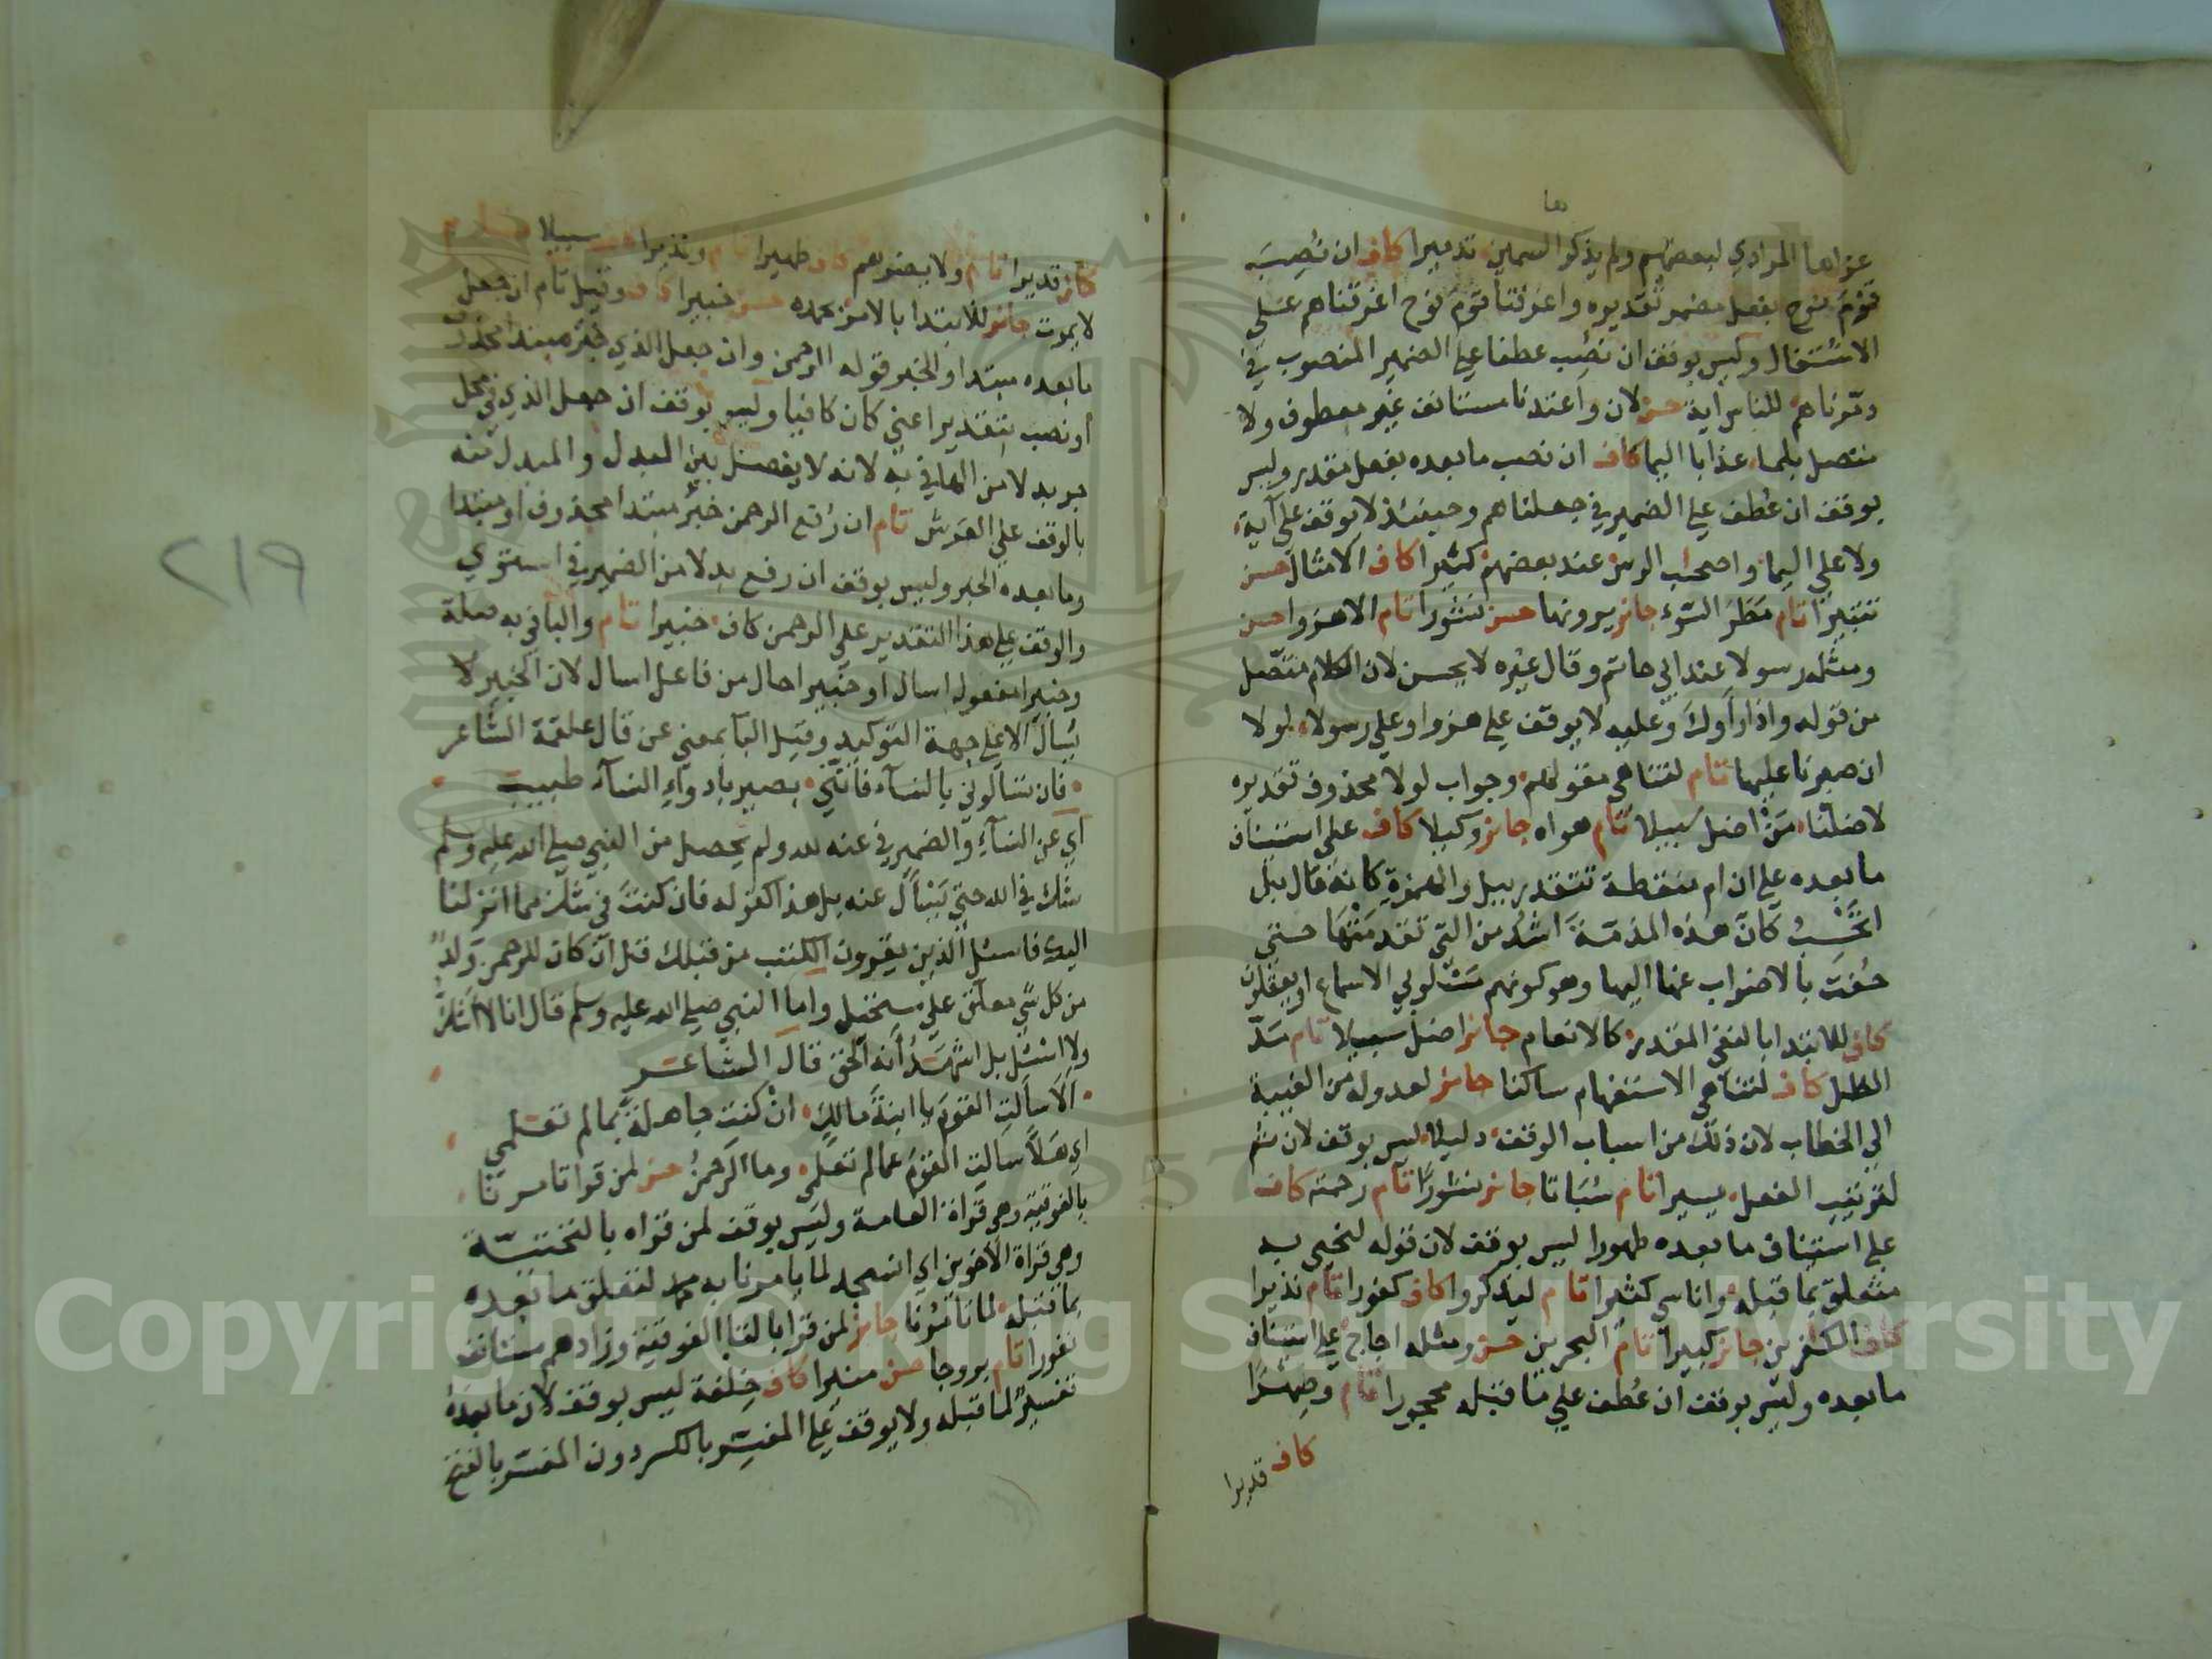 ها
عزاها المرادي لبعضهم ولم يذكر السمين تدميرا كاف ان نُصِبَ
قَوْمَ نوح بفعل مضمر تقديره واغرقنا قوم نوح اغرقناهم على
الاشتغال وليس بوقف ان نُصِب عطفا على الضمير المنصوب في
دمّرناهم للناس آية حسن لان واعتدنا مستانف غير معطوف ولا
متصل بلما عذابا اليما كاف ان نصب ما بعده بفعل مقدر وليس
بوقف ان عُطف على الضمير في جعلناهم وحينئذ لا يوقف على آية
ولا على اليما واصحب الرس عند بعضهم كثيرا كاف الامثال حسن
تتبيرًا تام مَطَرَ السَّوْء جائز يرونها حسن نشورا تام الا هزوا حسن
ومثله رسولا عند ابي حاتم وقال غيره لا يحسن لان الكلام متصل
من قوله واذا رأوك وعليه لا يوقف على هزوا وعلى رسولا لولا
ان صبرنا عليها تام لتناهي مقولهم وجواب لولا محذوف تقديره
لاضلنا مَنْ اضل سبيلا تام هواه جائز وكيلا كاف على استئناف
ما بعده على ان ام منقطة تتقدر ببل والهمزة كانه قال بل
اتَحْسَبُ كانّ هذه المذمّة اشدُّ من التي تقدمتها حتى
حُفّت بالاضراب عنها اليها وهو كونهم مسلوبي الاسماع او يعقلون
كاف للابتدا بالنفي المقدر كالانعام جائز اضل سبيلا تام مدّ
الظل كاف لتناهي الاستفهام ساكنا جائز لعدوله من الغيبة
الى الخطاب لان ذلك من اسباب الوقف دليلا ليس بوقف لان ثم
لترتيب الفعل يسيرا تام سُبَاتا جائز نشورًا تام رحمته كاف
على استئناف ما بعده طهورا ليس بوقف لان قوله لنحيى به
متعلق بما قبله واناسي كثيرا تام ليذكروا كاف كفورا تام نذيرا
كاف الكفرين جائز كبيرا تام البحرين حسن ومثله اجاج على استئناف
ما بعده وليس بوقف ان عُطف على ما قبله محجورا تام وصِهْرًا
كاف قديرا
كاف قديرا تام ولا يضرهم كاف ظهيرا تام ونذيرا سبيلا
لا يموت جائز للابتدا بالامر بحمده حسن خبيرا كاف وقيل تام ان جعل
ما بعده مبتدا والخبر قوله الرحمن وان جعل الذي خبر مبتدا محذوف
أو نصب بتقدير اعني كان كافيا وليس بوقف ان جعل الذي في محل
جر بدلا من الها في به لانه لا يفصل بين البدل والمبدل منه
بالوقف على العرش تام ان رُفع الرحمن خبر مبتدا محذوف او مبتدا
وما بعده الخبر وليس بوقف ان رفع بدلا من الضمير في استوى
والوقف على هذا التقدير على الرحمن كاف خبيرا تام والبا في به صلة
وخبيرا مفعول اسال او خبيرا حال من فاعل اسال لان الخبير لا
يُسال الا على جهة التوكيد وقيل البا بمعنى عن قال علقمة الشاعر
فان تسالوني بالنساء فانني بصير بادواء النساء طبيب
اي عن النساء والضمير في عنه لله ولم يحصل من النبي صلى الله عليه وسلم
شك في الله حتى يَسْأَل عنه بل هذا كقوله فان كنت في شك مما انزلنا
اليك فاسئل الذين يقرون الكتب من قبلك قل ان كان للرحمن وَلدٌ
من كل شي معلق على مستحيل واما النبي صلى الله عليه وسلم قال انا لا اشك
ولا اسئل بل اشهد أنه الحق قال الشاعر
الا سالت القوم يا ابنة مالك ان كنت جاهلة بما لم تعلمي
اي هَلّا سالت القوم عما لم تعلم وما الرحمنُ حسن لمن قرا تامرنا
بالفوقية وهي قراة العامة وليس بوقف لمن قراه بالتحتيّة
وهي قراة الاخوين اي انسجد لما يامرنا به محمد لتعلق ما بعده
بما قبله لما تامُرُنا جائز لمن قرا بالتا الفوقية وزادهم مستانف
نفورا تام بروجا حسن منيرا كاف خِلْفة ليس بوقف لان ما بعده
تفسيرٌ لما قبله ولا يوقف على المفسِّر بالكسر دون المفسَّر بالفتح
٢١٩
Copyright © King Saud University
1957